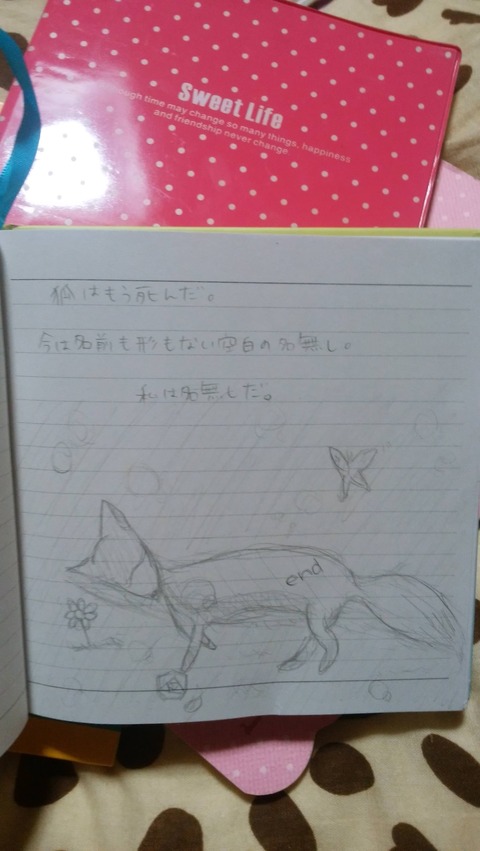 Sweet Life
ough time may change so many things, happiness
and friendship never change
狐はもう死んだ。
今は名前も形もない空白の名無し。
私は名無しだ。
end